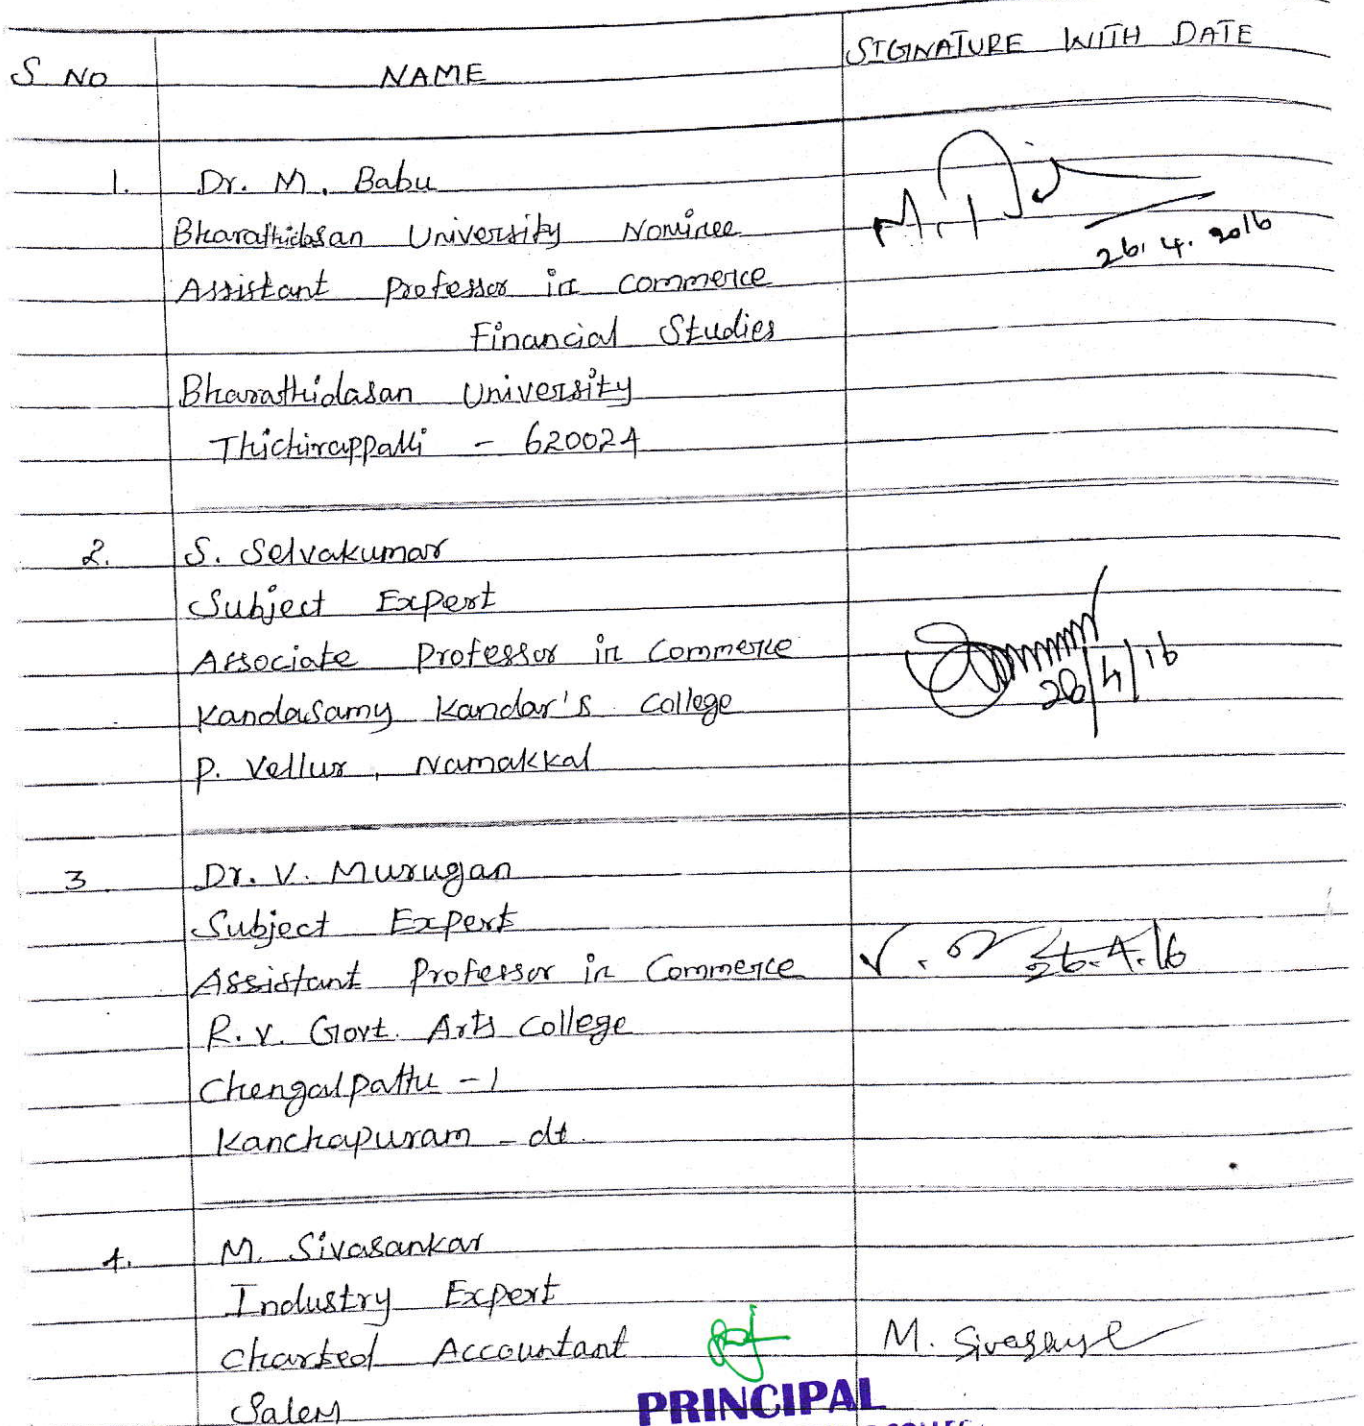 S NO NAME SIGNATURE WITH DATE
1. Dr. M. Babu
Bharathidasan University Nominee
26.4.2016
Assistant Professor in Commerce
Financial Studies
Bharathidasan University
Thichirappalli - 620024
2. S. Selvakumar
Subject Expert
Associate Professor in Commerce
26/4/16
Kandasamy Kandar's College
P. Vellur, Namakkal
3 Dr. V. Murugan
Subject Expert
Assistant Professor in Commerce 26.4.16
R.V. Govt. Arts College
Chengalpattu - 1
Kanchapuram - dt.
4. M. Sivasankar
Industry Expert
Charted Accountant M.
Salem
PRINCIPAL